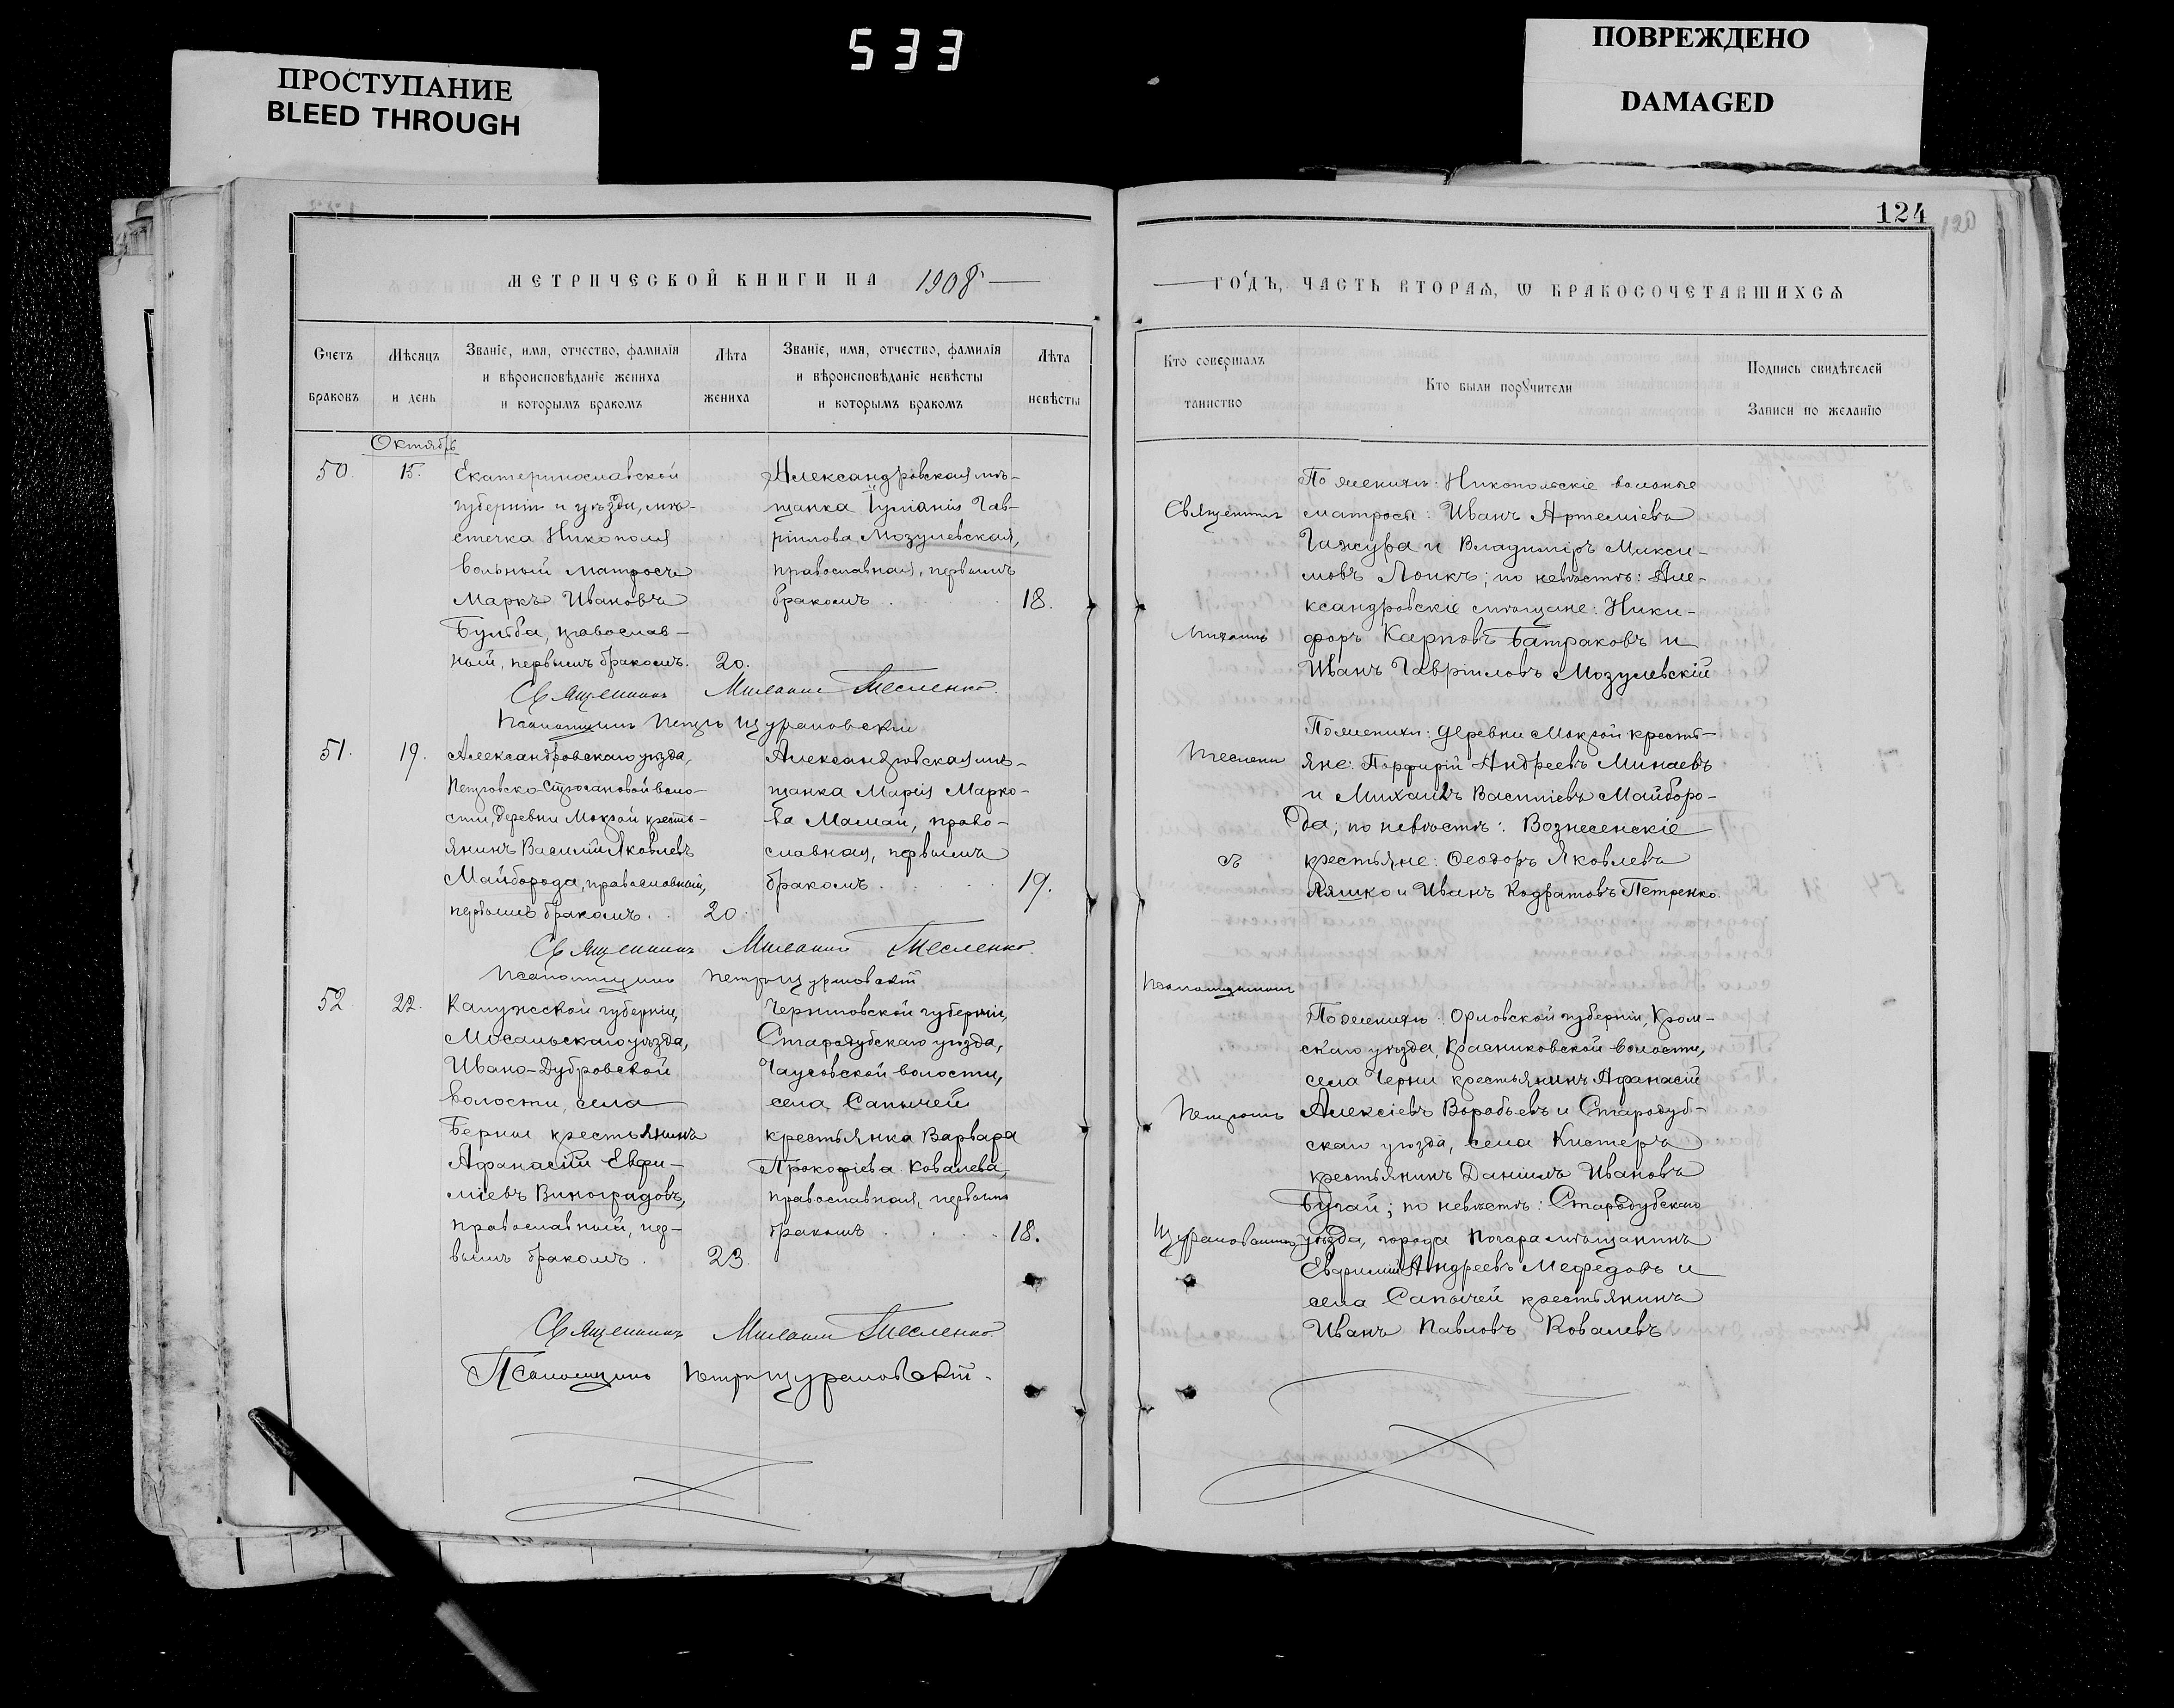 533
ПРОСТУПАНИЕ
BLEED THROUGH
ПОВРЕЖДЕНО
DAMAGED
МЕТРИЧЕСКОЙ КНИГИ НА 1908
Счетъ браковъ
Мѣсяцъ и день
Званіе, имя, отчество, фамилія
и вѣроисповѣданіе жениха
и которымъ бракомъ
Лѣта жениха
Званіе, имя, отчество, фамилія
и вѣроисповѣданіе невѣсты
и которымъ бракомъ
Лѣта невѣсты
Октябрь
50. 15.
Екатеринославской
губерніи и уѣзда, мѣ-
стечка Никополя
вольный матросъ
Маркъ Ивановъ
Бульба, православ-
ный, первымъ бракомъ. 20.
Александровская мѣ-
щанка Іуліанія Гав-
ріилова Мозулевская,
православная, первымъ
бракомъ 18.
Священникъ Тесленко.
Псаломщикъ Петръ Щурановскій
51. 19.
Александровскаго уѣзда,
воло-
сти, деревни Мокрой кресть-
янинъ Василій Яковлевъ
Майборода, православный,
первымъ бракомъ. 20.
Александровская мѣ-
щанка Марія Марко-
ва Мамай, право-
славная, первымъ
бракомъ 19.
Священникъ Тесленко.
Псаломщикъ Петръ Щурановскій
52 22.
Калужской губерніи,
Мосальскаго уѣзда,
Ивано-Дубровской
волости, села
Берни крестьянинъ
Афанасій Евфи-
міевъ Виноградовъ,
православный, пер-
вымъ бракомъ. 23.
Черниговской губерніи,
Стародубскаго уѣзда,
Чаусовской волости,
села Сапычей
крестьянка Варвара
Прокофіева Ковалева,
православная, первымъ
бракомъ 18.
Священникъ Тесленко
Псаломщикъ Петръ Щурановскій.
124
120
ГОДЪ, ЧАСТЬ ВТОРАЯ, Ѡ БРАКОСОЧЕТАВШИХСЯ
Кто совершалъ таинство
Кто были поручители
Подпись свидѣтелей
Записи по желанію
Священникъ
Тесленко
съ
Псаломщикомъ
Петромъ
Щурановскимъ
По женихѣ: Никопольскіе вольные
матросы: Иванъ Артеміевъ
Гажура и Владиміръ Макси-
мовъ Лоикъ; по невѣстѣ: Але-
ксандровскіе мѣщане: Ники-
форъ Карповъ Батраковъ и
Иванъ Гавріиловъ Мозулевскій
По женихѣ: деревни Мокрой кресть-
яне: Порфирій Андреевъ Минаевъ
и Михаилъ Васильевъ Майборо-
да; по невѣстѣ: Вознесенскіе
крестьяне: Ѳеодоръ Яковлевъ
Ляшко и Иванъ Кодратовъ Петренко.
По женихѣ: Орловской губерніи, Кром-
скаго уѣзда, Красниковской волости,
села Черни крестьянинъ Афанасій
Алексіевъ Воробьевъ и Стародуб-
скаго уѣзда, села Кистеръ
крестьянинъ Даніилъ Ивановъ
Бугай; по невѣстѣ: Стародубскаго
уѣзда, города Погара мѣщанинъ
Евфимій Андреевъ Мефедовъ и
села Сапычей крестьянинъ
Иванъ Павловъ Ковалевъ